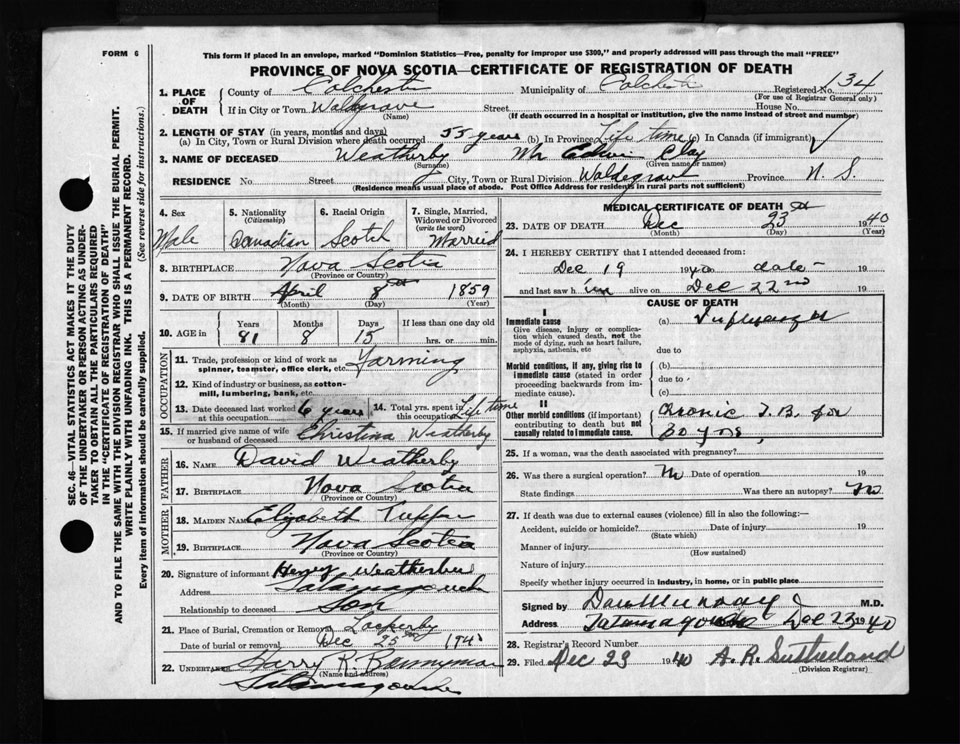 FORM 6
This form if placed in an envelope, marked "Dominion Statistics—Free, penalty for improper use $300," and properly addressed will pass through the mail "FREE"
PROVINCE OF NOVA SCOTIA—CERTIFICATE OF REGISTRATION OF DEATH
SEC. 46—VITAL STATISTICS ACT MAKES IT THE DUTY
OF THE UNDERTAKER OR PERSON ACTING AS UNDER-
TAKER TO OBTAIN ALL THE PARTICULARS REQUIRED
IN THE "CERTIFICATE OF REGISTRATION OF DEATH"
AND TO FILE THE SAME WITH THE DIVISION REGISTRAR WHO SHALL ISSUE THE BURIAL PERMIT.
WRITE PLAINLY WITH UNFADING INK. THIS IS A PERMANENT RECORD.
Every item of information should be carefully supplied. (See reverse side for instructions.)
1. PLACE OF DEATH County of Colchester Municipality of Colchester Registered No. 134
(For use of Registrar General only)
If in City or Town Waldgrave Street House No.
(Name) (If death occurred in a hospital or institution, give the name instead of street and number)
2. LENGTH OF STAY (in years, months and days)
(a) In City, Town or Rural Division where death occurred 55 years (b) In Province Life time (c) In Canada (if immigrant)
3. NAME OF DECEASED Weatherby Wm Clay
(Surname) (Given name or names)
RESIDENCE No. Street City, Town or Rural Division Waldegrave Province N. S.
(Residence means usual place of abode. Post Office Address for residents in rural parts not sufficient)
4. Sex Male
5. Nationality (Citizenship) Canadian
6. Racial Origin Scotch
7. Single, Married, Widowed or Divorced (write the word) Married
8. BIRTHPLACE Nova Scotia
(Province or Country)
9. DATE OF BIRTH April 8th 1859
(Month) (Day) (Year)
10. AGE in Years 81 Months 8 Days 15 If less than one day old hrs. or min.
OCCUPATION
11. Trade, profession or kind of work as spinner, teamster, office clerk, etc. Farming
12. Kind of industry or business, as cotton-mill, lumbering, bank, etc.
13. Date deceased last worked at this occupation 6 years
14. Total yrs. spent in this occupation Life time
15. If married give name of wife or husband of deceased Christina Weatherby
FATHER
16. NAME David Weatherby
17. BIRTHPLACE Nova Scotia
(Province or Country)
MOTHER
18. MAIDEN NAME Elizabeth Tupper
19. BIRTHPLACE Nova Scotia
(Province or Country)
20. Signature of informant Henry Weatherbee
Address Tatamagouche
Relationship to deceased Son
21. Place of Burial, Cremation or Removal Lockerby
Date of burial or removal Dec 25th 194
22. UNDERTAKER Harry R. Bannyman
(Name and address)
Tatamagouche
MEDICAL CERTIFICATE OF DEATH
23. DATE OF DEATH Dec 23 1940
(Month) (Day) (Year)
24. I HEREBY CERTIFY that I attended deceased from:
Dec 19 1940 date 19
and last saw h im alive on Dec 22nd 19
CAUSE OF DEATH
I
Immediate cause (a) Influenza
Give disease, injury or complication which caused death, not the mode of dying, such as heart failure, asphyxia, asthenia, etc
due to
Morbid conditions, if any, giving rise to immediate cause (stated in order proceeding backwards from immediate cause). (b)
due to
(c)
II
Other morbid conditions (if important) contributing to death but not causally related to immediate cause. Cronic T.B. for 30 yrs,
25. If a woman, was the death associated with pregnancy?
26. Was there a surgical operation? No Date of operation 19
State findings Was there an autopsy? No
27. If death was due to external causes (violence) fill in also the following:—
Accident, suicide or homicide? Date of injury 19
(State which)
Manner of injury
(How sustained)
Nature of injury
Specify whether injury occurred in industry, in home, or in public place
Signed by Dan Murray M.D.
Address Tatamagouche Dec 23 1940
28. Registrar's Record Number
29. Filed Dec 23 1940 A. R. Sutherland
(Division Registrar)